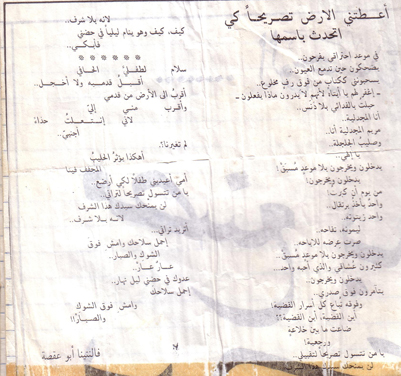 أعطتني الارض تصريحاً كي
اتحدث باسمها
في موعد احتراقي يفرحون..
يضحكون حين تدمع العيون..
من إغفر لهم يا أبتاه لأنهم لا يدرون ماذا يفعلون -
حبلت بالفدائي بلا دنس..
أنا المجدلية.
مريم المجدلية أنا..
وصليب الجلجلة..
يا إلهي..
يدخلون ويخرجون بلا موعد مسبق!!
يدخلون ويخرجون!
من يوم أن كانت
واحد يأخذ برتقاله..
واحد زيتونه..
ليمونه، تفاحه..
صرت عرضه للاباحه..
يدخلون ويخرجون بلا موعد
كثيرون عشاقي والذي أحبه واحد...
يدخلون ويخرجون..
يتآمرون فوق صدري..
وفوقه تباع كل أسرار القضية!
أين القضية، أين القضية؟؟
ضاعت ما بين خلاعة
ورجعية!
يا من تتسول تصريحاً لتقبيلي
لن يمنحك سيدك هذا الشرف..
لانه بلا شرف..
كيف، كيف وهو ينام ليلياً في حضني
فأبكي..
* * * * * *
سلام لطفلي الحافي
أقبل قدميه ولا أخجل..
أقرب الى الأرض من قدمي
وأقرب مشى إليّ
لاني إنتعلت حذاءً
أجنبي..
لم تغيرنا؟
أهكذا يؤثر الحليب
المجفف فينا
أمي أعيديني طفلاً لكي أرضع
يا من تتسول تصريحاً لترابي..
لن يمنحك سيدك هذا الشرف
لانه بلا شرف..
أتريد ترابي..
إحمل سلاحك وامش فوق
الشوك والصبار..
عارٌ عارٌ..
عدوك في حضني ليل نهار..
إحمل سلاحك
وامش فوق الشوك
والصبار!!
فالنتينا أبو عقصة